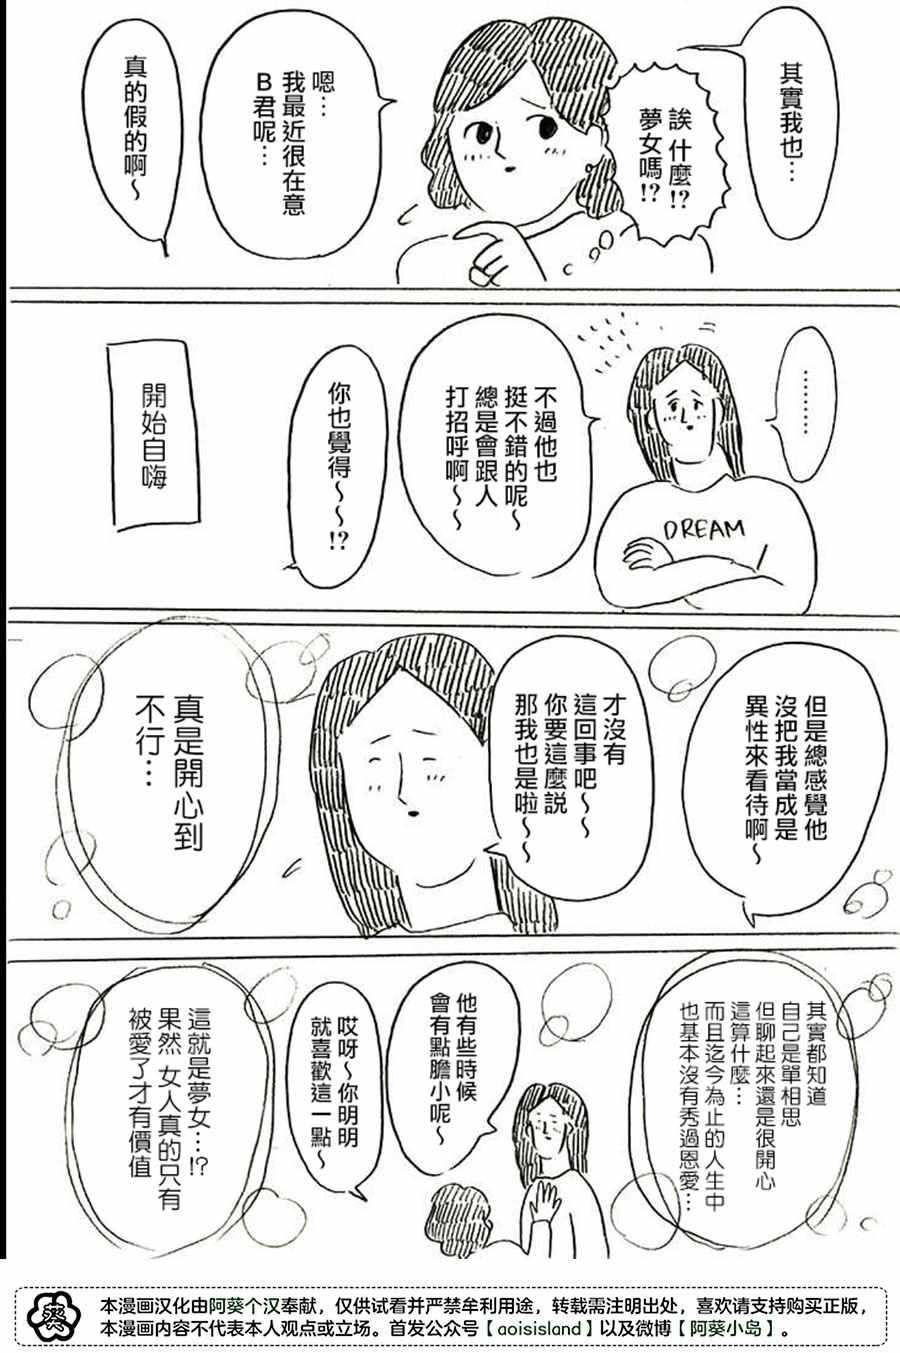 其實我也…
誒 什麼!?
夢女嗎!?
嗯…
我最近很在意
B君呢…
真的假的啊～
………
不過他也
挺不錯的呢～
總是會跟人
打招呼啊～～
DREAM
你也覺得～～!?
開始自嗨
但是總感覺他
沒把我當成是
異性來看待啊～
才沒有
這回事吧～
你要這麼説
那我也是啦～
真是開心到
不行…
其實都知道
自己是單相思
但聊起來還是很開心
這算什麼…
而且迄今為止的人生中
也基本沒有秀過恩愛…
他有些時候
會有點膽小呢～
哎呀～你明明
就喜歡這一點～
這就是夢女…!?
果然 女人真的只有
被愛了才有價值
葵
本漫画汉化由阿葵个汉奉献，仅供试看并严禁牟利用途，转载需注明出处，喜欢请支持购买正版，
本漫画内容不代表本人观点或立场。首发公众号【aoisisland】以及微博【阿葵小岛】。